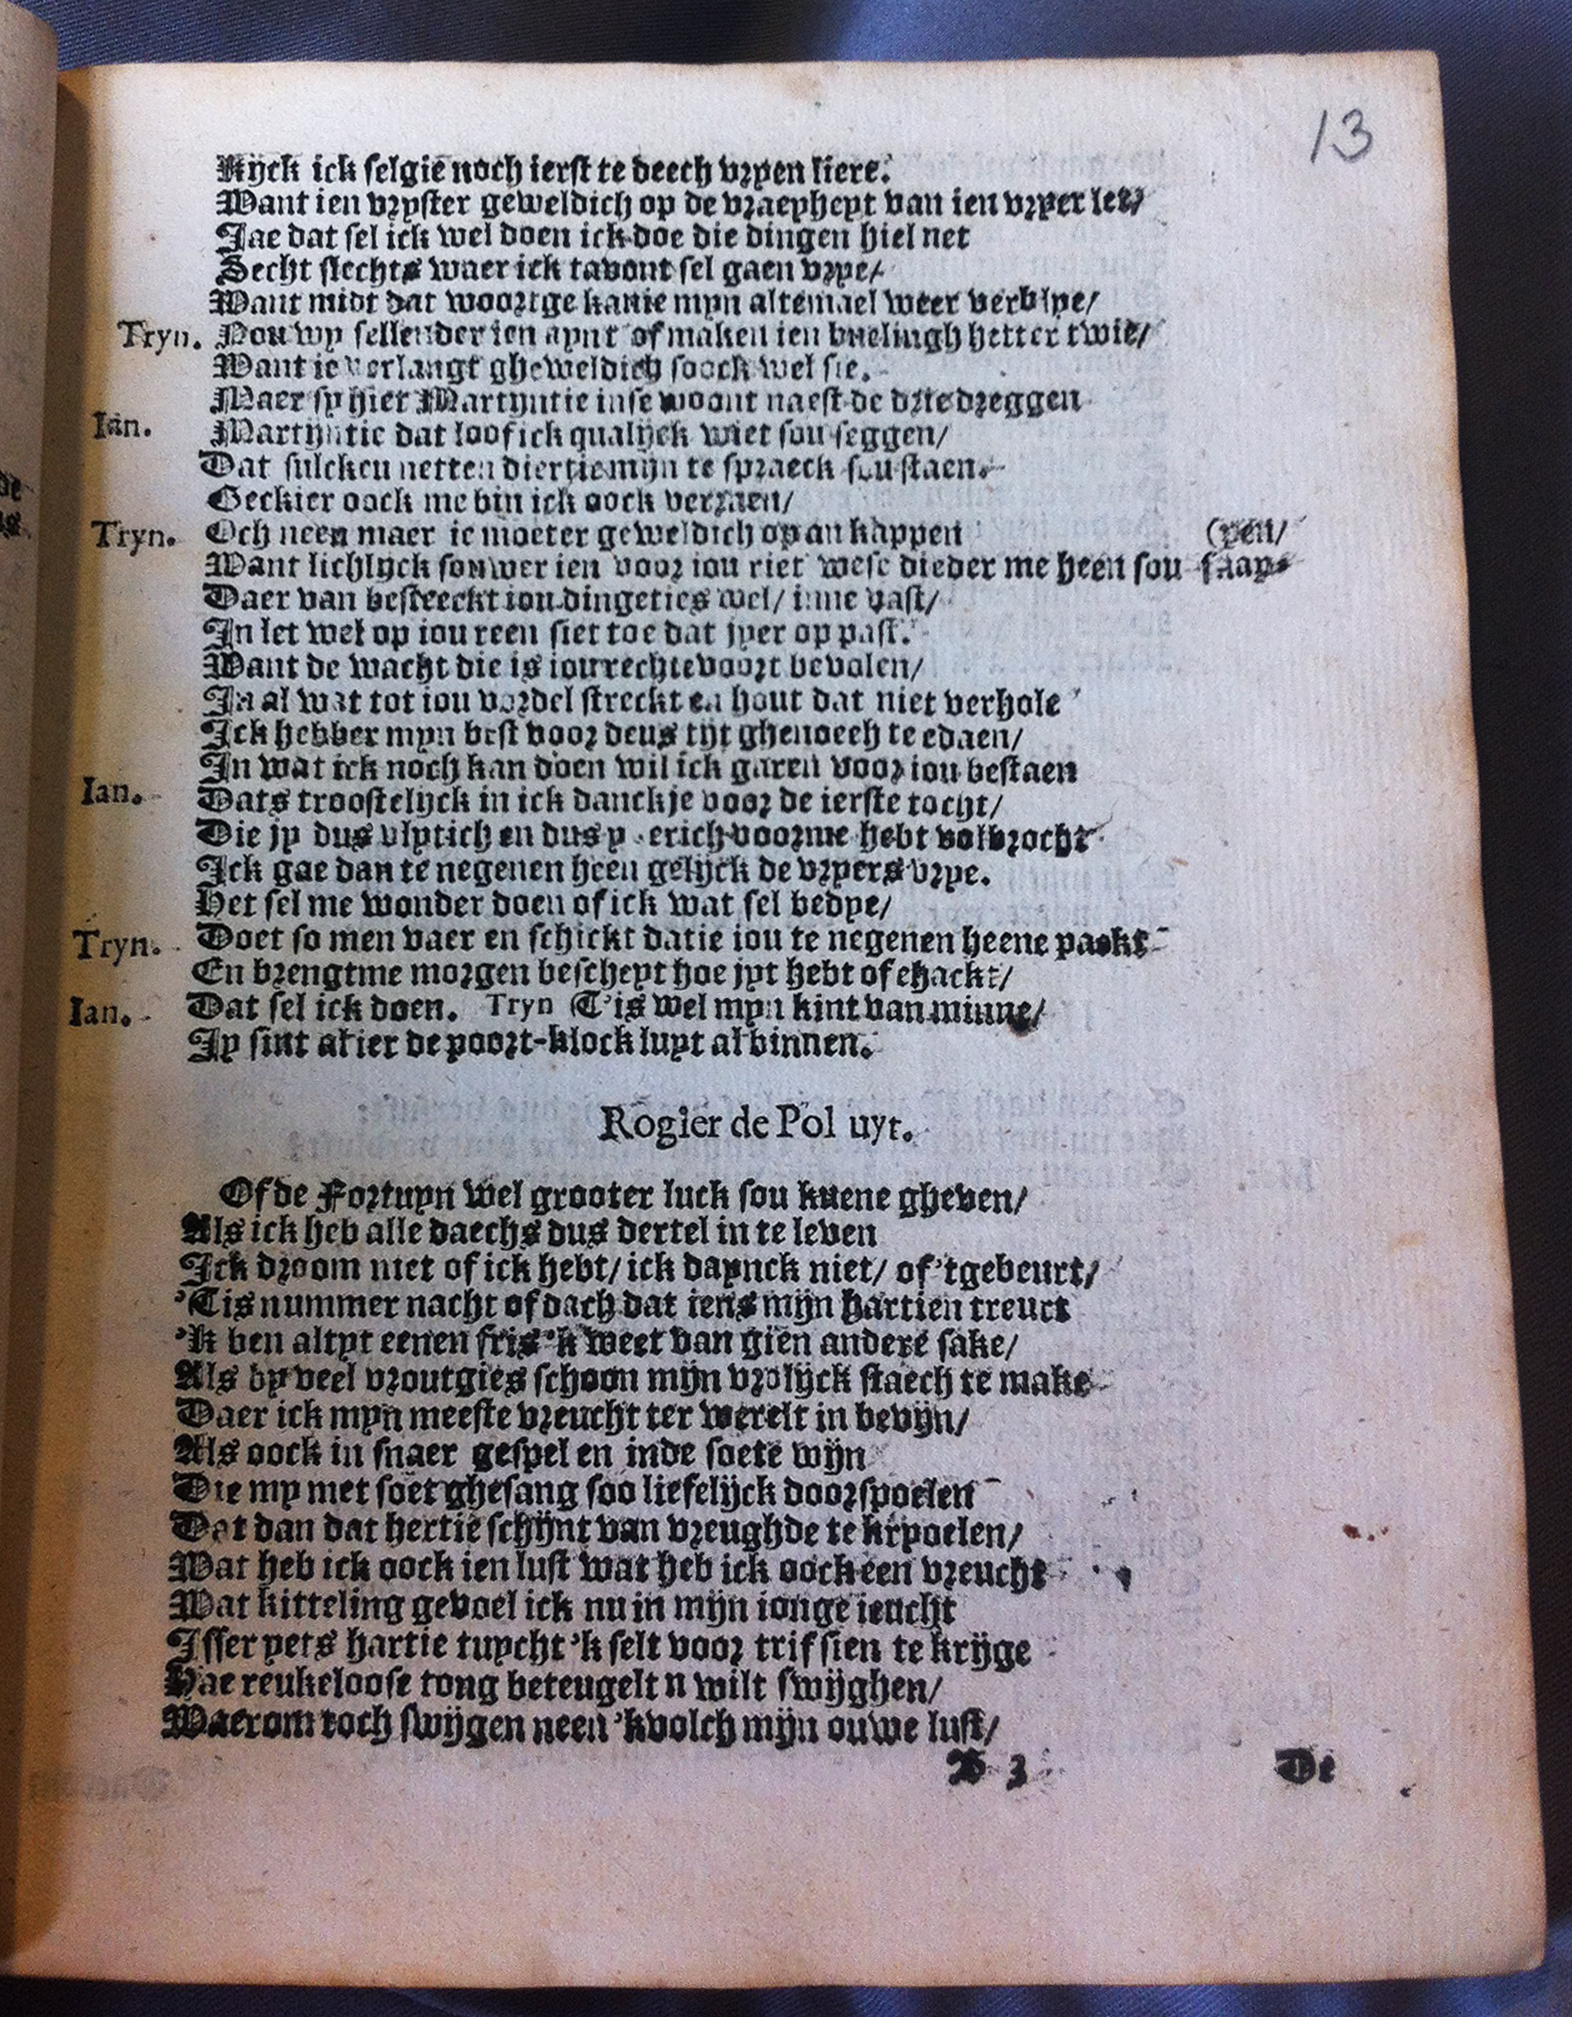 13
Kijck ick selgie noch ierst te deech vryen liere.
Want ien vryster geweldich op de vraeyheyt van ien vryer let/
Jae dat sel ick wel doen ick doe die dingen hiel net
Secht slechts waer ick tavont sel gaen vrye/
Want midt dat woortge kanie myn altemael weer verblye/
Tryn. Nou wy sellender ien aynt of maken ien buelingh hetter twie/
Want ie verlangt gheweldich soock wel sie.
Maer sy hiet Martijntie inse woont naest de drie dreggen
Ian. Martijntie dat loof ick qualijck wiet sou seggen/
Dat sulcken netten diertie mijn te spraeck sou staen.
Geckier oock me bin ick oock verraen/
Tryn. Och neen maer ie moeter geweldich op an kappen (pen/
Want lichlijck souwer ien voor iou riet wese dieder me heen sou
Daer van besteeckt iou dingeties wel/ inne vast/
In let wel op iou reen siet toe dat jyer op past.
Want de wacht die is iou rechtevoort bevolen/
In al wat tot iou vordel streckt en hout dat niet verhole
Ick hebber myn best voor deus tijt ghenoech te edaen/
In wat ick noch kan doen wil ick garen voor iou bestaen
Ian. Dats troostelijck in ick danckje voor de ierste tocht/
Die jy dus vlytich en dus voorme hebt volbrocht
Ick gae dan te negenen heen gelijck de vryers vrye.
Het sel me wonder doen of ick wat sel bedye/
Tryn. Doet so men vaer en schickt datie iou te negenen heene packt
En brengtme morgen bescheyt hoe jyt hebt of ehackt/
Ian. Dat sel ick doen. Tryn T'is wel myn kint van minne/
Jy sint al ier de poort-klock luyt al binnen.
Rogier de Pol uyt.
Of de Fortuyn wel grooter luck sou kuene gheven/
Als ick heb alle daechs dus dertel in te leven
Ick droom niet of ick hebt/ ick daynck niet/ of 'tgebeurt/
'Tis nummer nacht of dach dat iens mijn hartien treurt
'K ben altyt eenen fris 'k weet van gien andere sake/
Als by veel vroutgies schoon mijn vrolijck staech te make
Daer ick myn meeste vreucht ter werelt in bevijn/
Als oock in snaer gespel en inde soete wijn
Die my met soet ghesang soo liefelijck doorspoelen
Dat dan dat hertie schijnt van vreughde te krpoelen/
Wat heb ick oock ien lust wat heb ick oock een vreucht
Wat kitteling gevoel ick nu in mijn ionge ieucht
Isser yets hartie tuycht 'k selt voor trif sien te krijge
Hae reukeloose tong beteugelt n wilt swijghen/
Waerom toch swijgen neen 'k volch mijn ouwe lust/
B 3 De